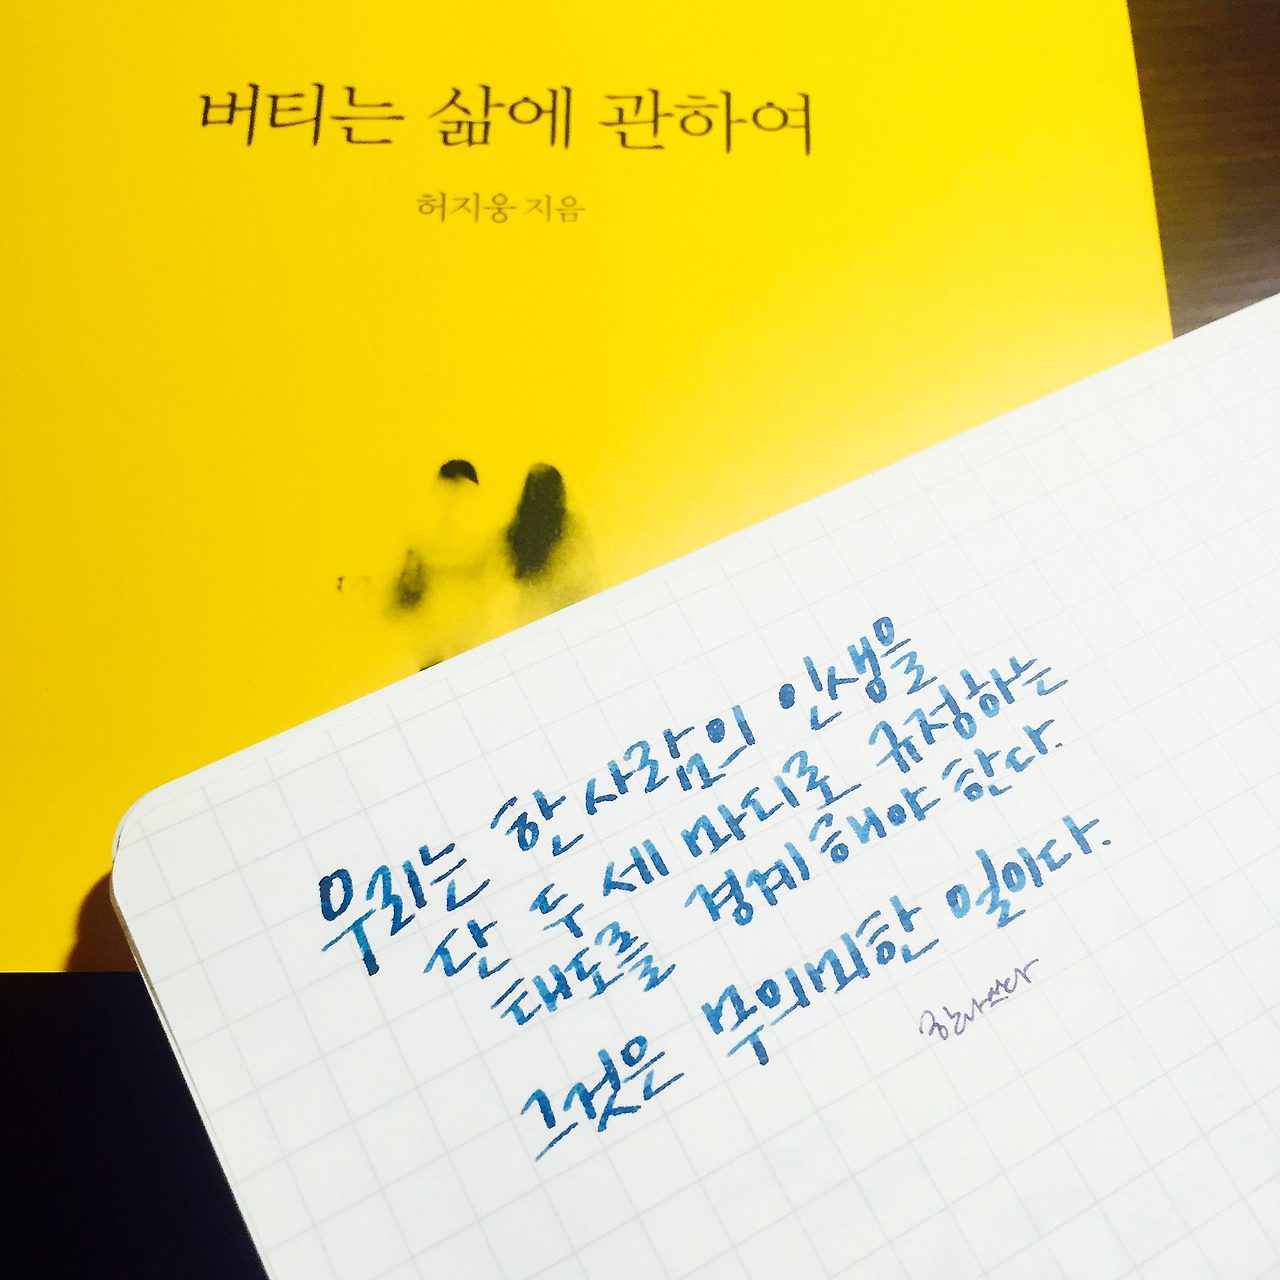 버티는 삶에 관하여
허지웅 지음
우리는 한 사람의 인생을
단 두 세 마디로 규정하는
태도를 경계해야 한다.
그것은 무의미한 일이다.